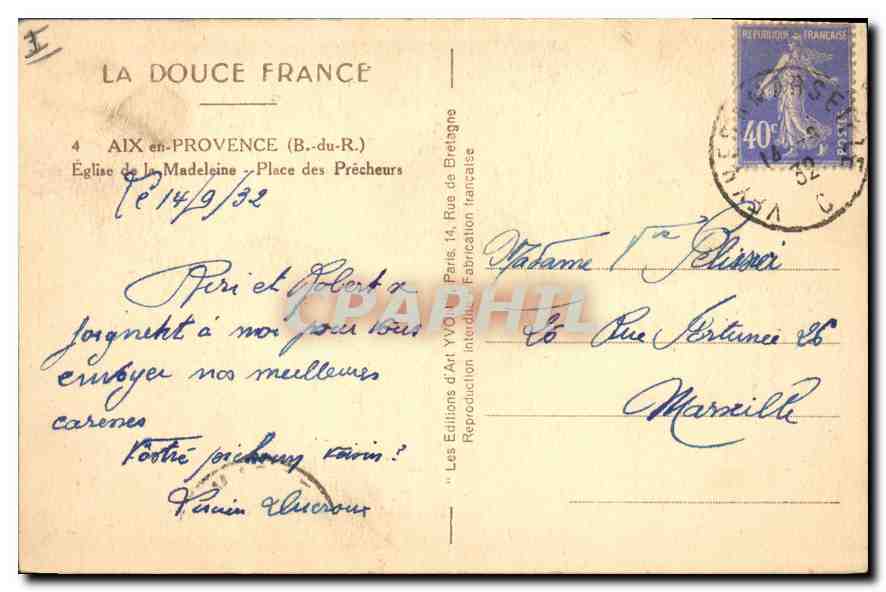 LA DOUCE FRANCE
4 AIX en-PROVENCE (B.-du-R.)
Église de la Madeleine - Place des Prêcheurs
le 14/9/32
Riri et Robert se
joignent à moi pour vous
envoyer nos meilleures
caresses
Vostré pichoun
Ducroux
" Les Editions d'Art YVON " Paris, 14, Rue de Bretagne
Reproduction interdite. Fabrication française
REPUBLIQUE FRANÇAISE
40c
POSTES
MARSEILLE
14 - 9
32
Madame Vve
26 Rue Fortunée 26
Marseille
CPAPHIL